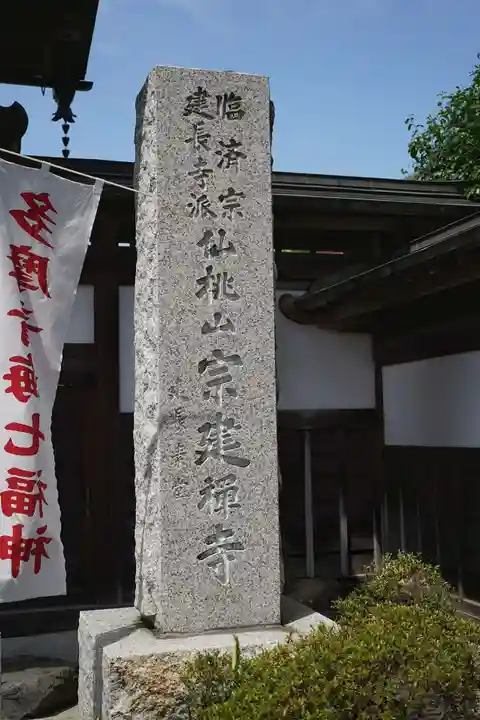 臨済宗
建長寺派
仙桃山宗建禅寺
多摩青梅七福神